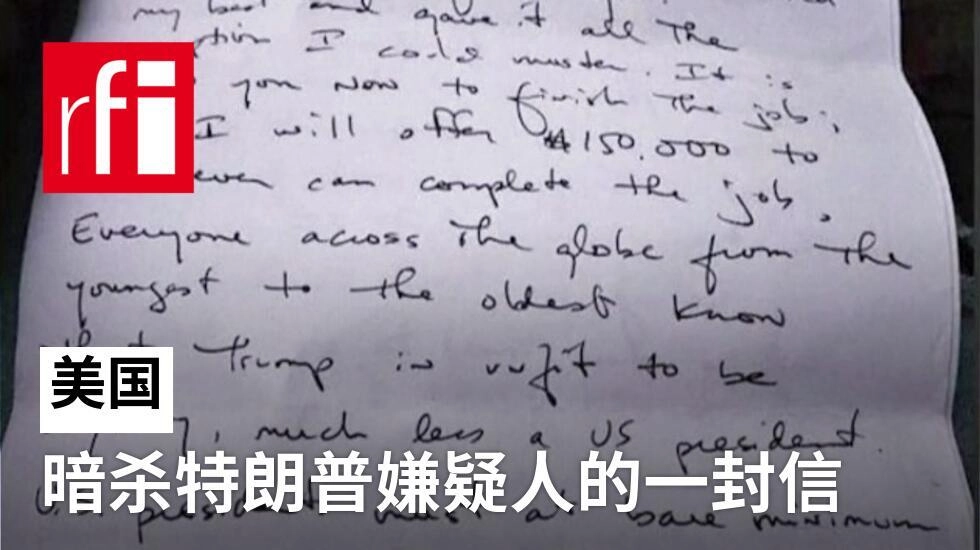 my best and gave it all the
I could muster. It is
rfi
you now to finish the job;
I will offer $150,000 to
ever can complete the job.
Everyone across the globe from the
youngest to the oldest know
Trump is unfit to be
美国
much less a US president.
暗杀特朗普嫌疑人的一封信
president must at bare minimum